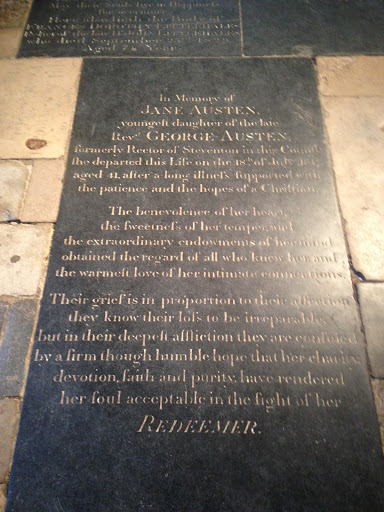 May their Souls live in
for evermore
Here also lieth the Body of
who died September
Aged 74 Years.
In Memory of
JANE AUSTEN,
youngeſt daughter of the late
Revd. GEORGE AUSTEN,
formerly Rector of Steventon in this County
ſhe departed this Life on the 18th of July 1817,
aged 41, after a long illneſs ſupported with
the patience and the hopes of a Chriſtian.
The benevolence of her heart,
the ſweetneſs of her temper, and
the extraordinary endowments of her mind
obtained the regard of all who knew her and
the warmeſt love of her intimate connections.
Their grief is in proportion to their affection
they know their loſs to be irreparable,
but in their deepeſt affliction they are conſoled
by a firm though humble hope that her charity,
devotion, faith and purity, have rendered
her ſoul acceptable in the ſight of her
REDEEMER.